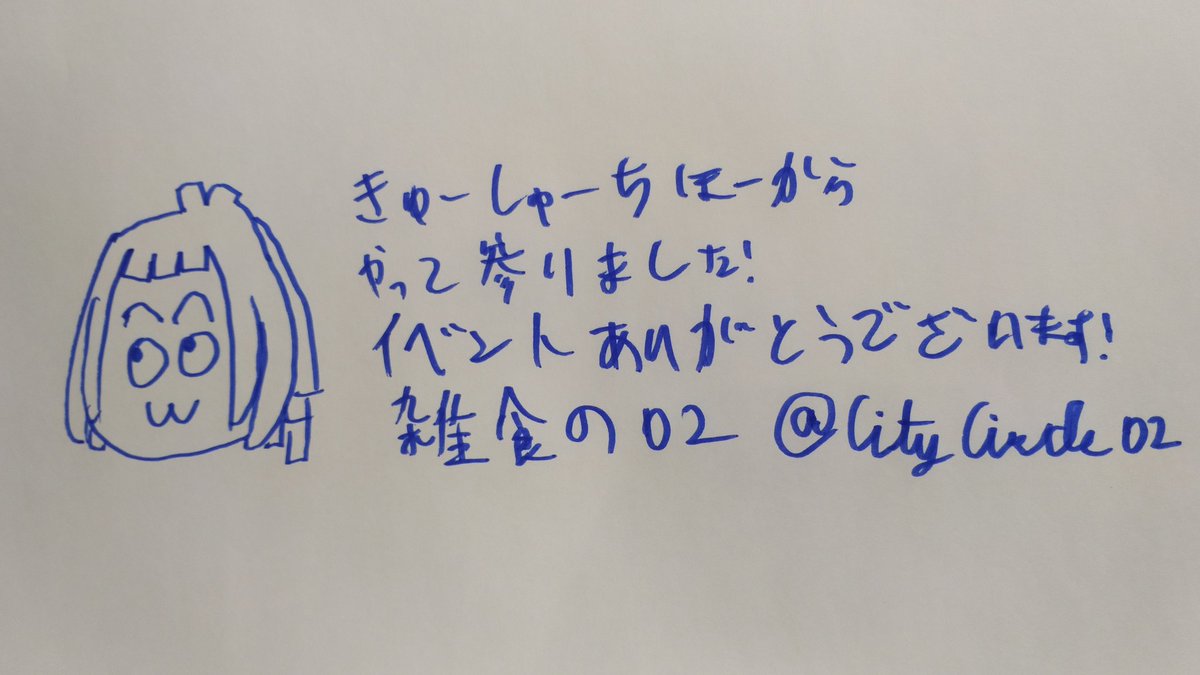 きゅーしゅーちほーから
やって参りました!
イベントありがとうございます!
雑食の02 @CityCircle02